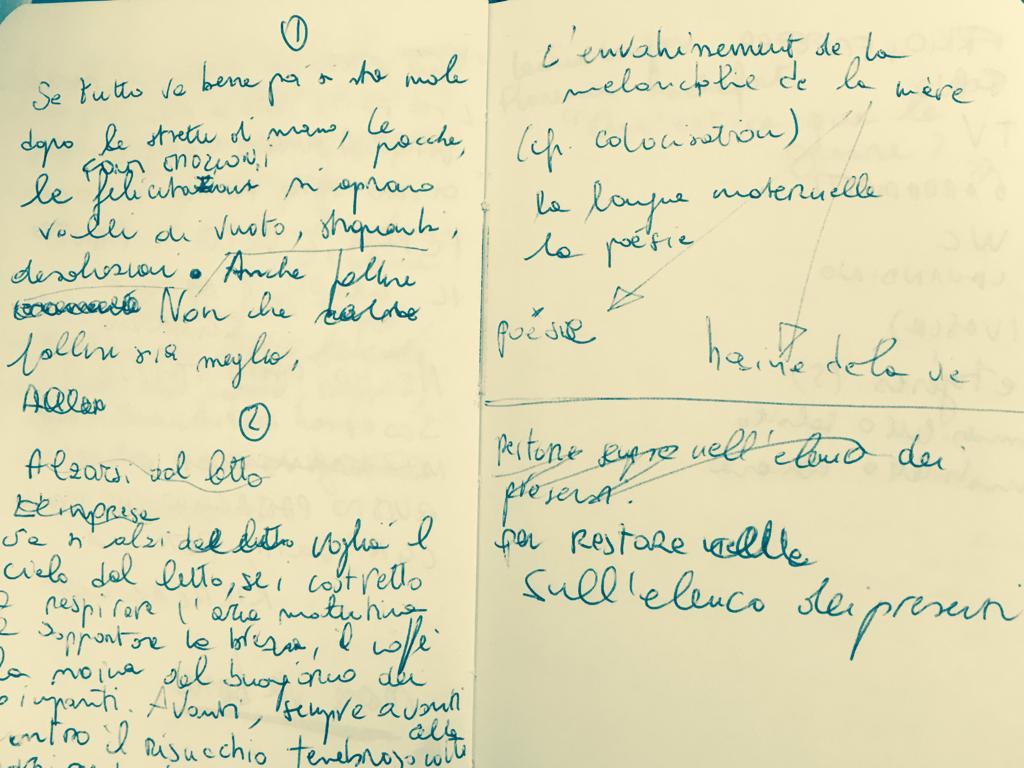 ①
Se tutto va bene poi si sta male
dopo le strette di mano, le pacche,
con emozioni
le felicitazioni si aprono
valli di vuoto,
desolazioni. Anche fallire
Non che
fallire sia meglio,
②
Alzarsi dal letto
Le imprese
se si alzi dal letto voglia il
cielo dal letto, sei costretto
a respirare l'aria mattutina
a sopportare la brezza, il caffè
la moina del buongiorno dei
Avanti, sempre avanti
contro il risucchio tenebroso
L'envahissement de la
melancolie de la mère
(cf. colonisation)
la langue maternelle
la poésie
poésie
haine de la vie
restare sempre nell'elenco dei
presenti.
per restare
sull'elenco dei presenti